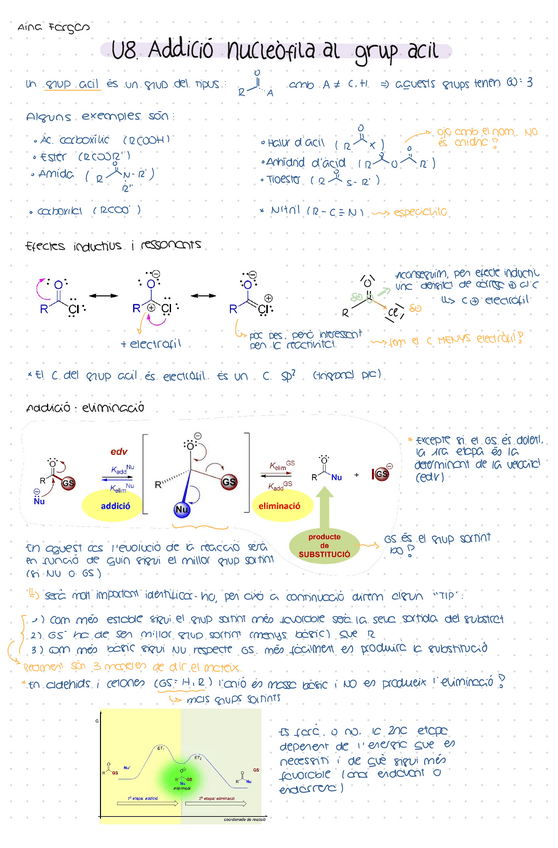 Aina Fargas
U8. Addició nucleòfila al grup acil
Un grup acil és un grup del tipus: R O A amb A ≠ C, H ⇒ aquests grups tenen GO = 3
Alguns exemples són:
• Àc. carboxílic (RCOOH)
• Èster (RCOOR')
• Amida (R O N-R' R'')
• carboxilat (RCOO⁻)
• Halur d'àcid (R O X)
• Anhídrid d'àcid (R O O O R')
• Tioèster (R O S-R')
* Nitril (R-C≡N) → especialito
ojo amb el nom. NO
és anidric!
Efectes inductius i ressonants
R O Cl ↔ R O Cl ↔ R O Cl
+ electròfil
poc pes, però interessant
per la reactivitat
R O Cl δ⊕ δ⊖
Aconseguim, per efecte inductiu
una densitat de càrrega ⊕ al C
↳ C⊕ electròfil
→ fem el C MENYS electròfil!
* El C del grup acil és electròfil. És un C sp² (trigonal pla)
Addició - eliminació
edv
K add Nu
K elim Nu
addició
K elim GS
K add GS
eliminació
R O GS Nu
R O GS Nu
R O Nu + GS
producte
de
SUBSTITUCIÓ
* Excepte si el GS és dolent,
la 1ra etapa és la
determinant de la velocitat
(edv)
GS és el grup sortint
En aquest cas l'evolució de la reacció serà
en funció de quin sigui el millor grup sortint
(si NU o GS)
serà molt important identificar-ho, per això a continuació direm algun "TIP":
1) Com més estable sigui el grup sortint més favorable serà la seva sortida del substrat
2) GS ha de ser millor grup sortint (menys bàsic) que R
3) Com més bàsic sigui NU respecte GS, més fàcilment es produirà la substitució
Realment són 3 maneres de dir el mateix
* En aldehids i cetones (GS = H, R) l'anió és massa bàsic i NO es produeix l'eliminació!
↳ mals grups sortints
G
ET₁
ET₂
R O GS Nu
R O GS Nu
intermedi
R O Nu GS
1ª etapa: addició
2ª etapa: eliminació
coordenada de reacció
Es farà o no la 2na etapa
depenent de l'energia que es
necessiti i de què sigui més
favorable (anar endavant o
endarrere)